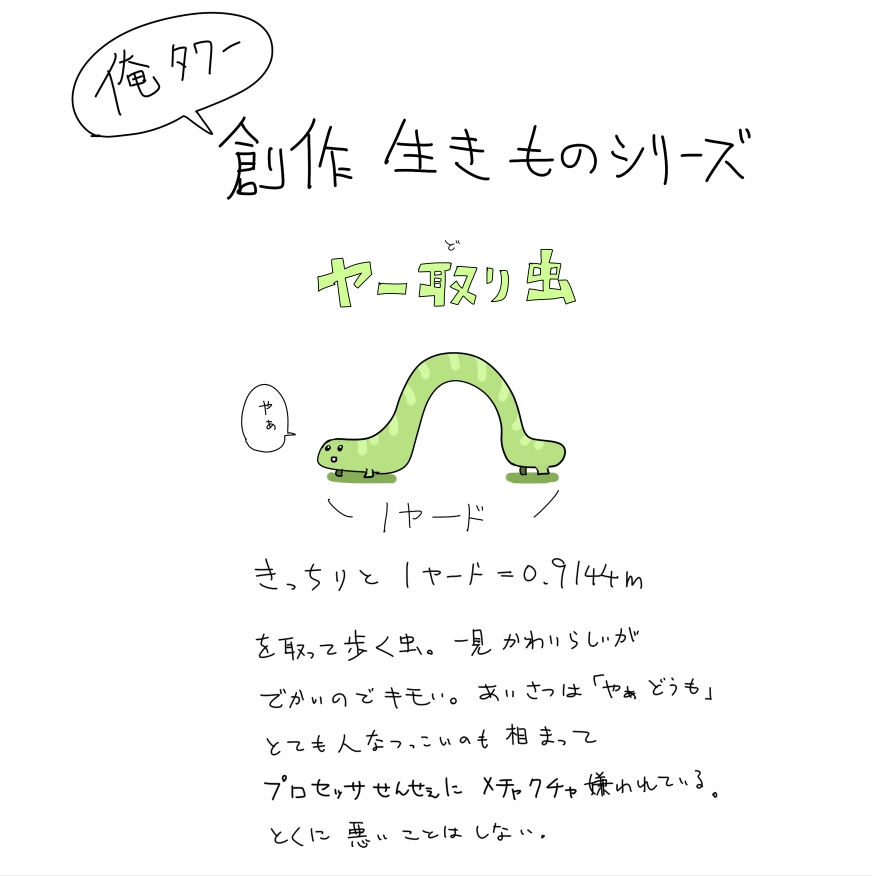 俺タワー
創作 生きものシリーズ
ど
ヤー取り虫
やぁ
1ヤード
きっちりと 1ヤード=0.9144m
を取って歩く虫。一見かわいらしいが
でかいのでキモい。あいさつは「やぁどうも」
とても人なつっこいのも相まって
プロセッサせんせぇにメチャクチャ嫌われている。
とくに悪いことはしない.